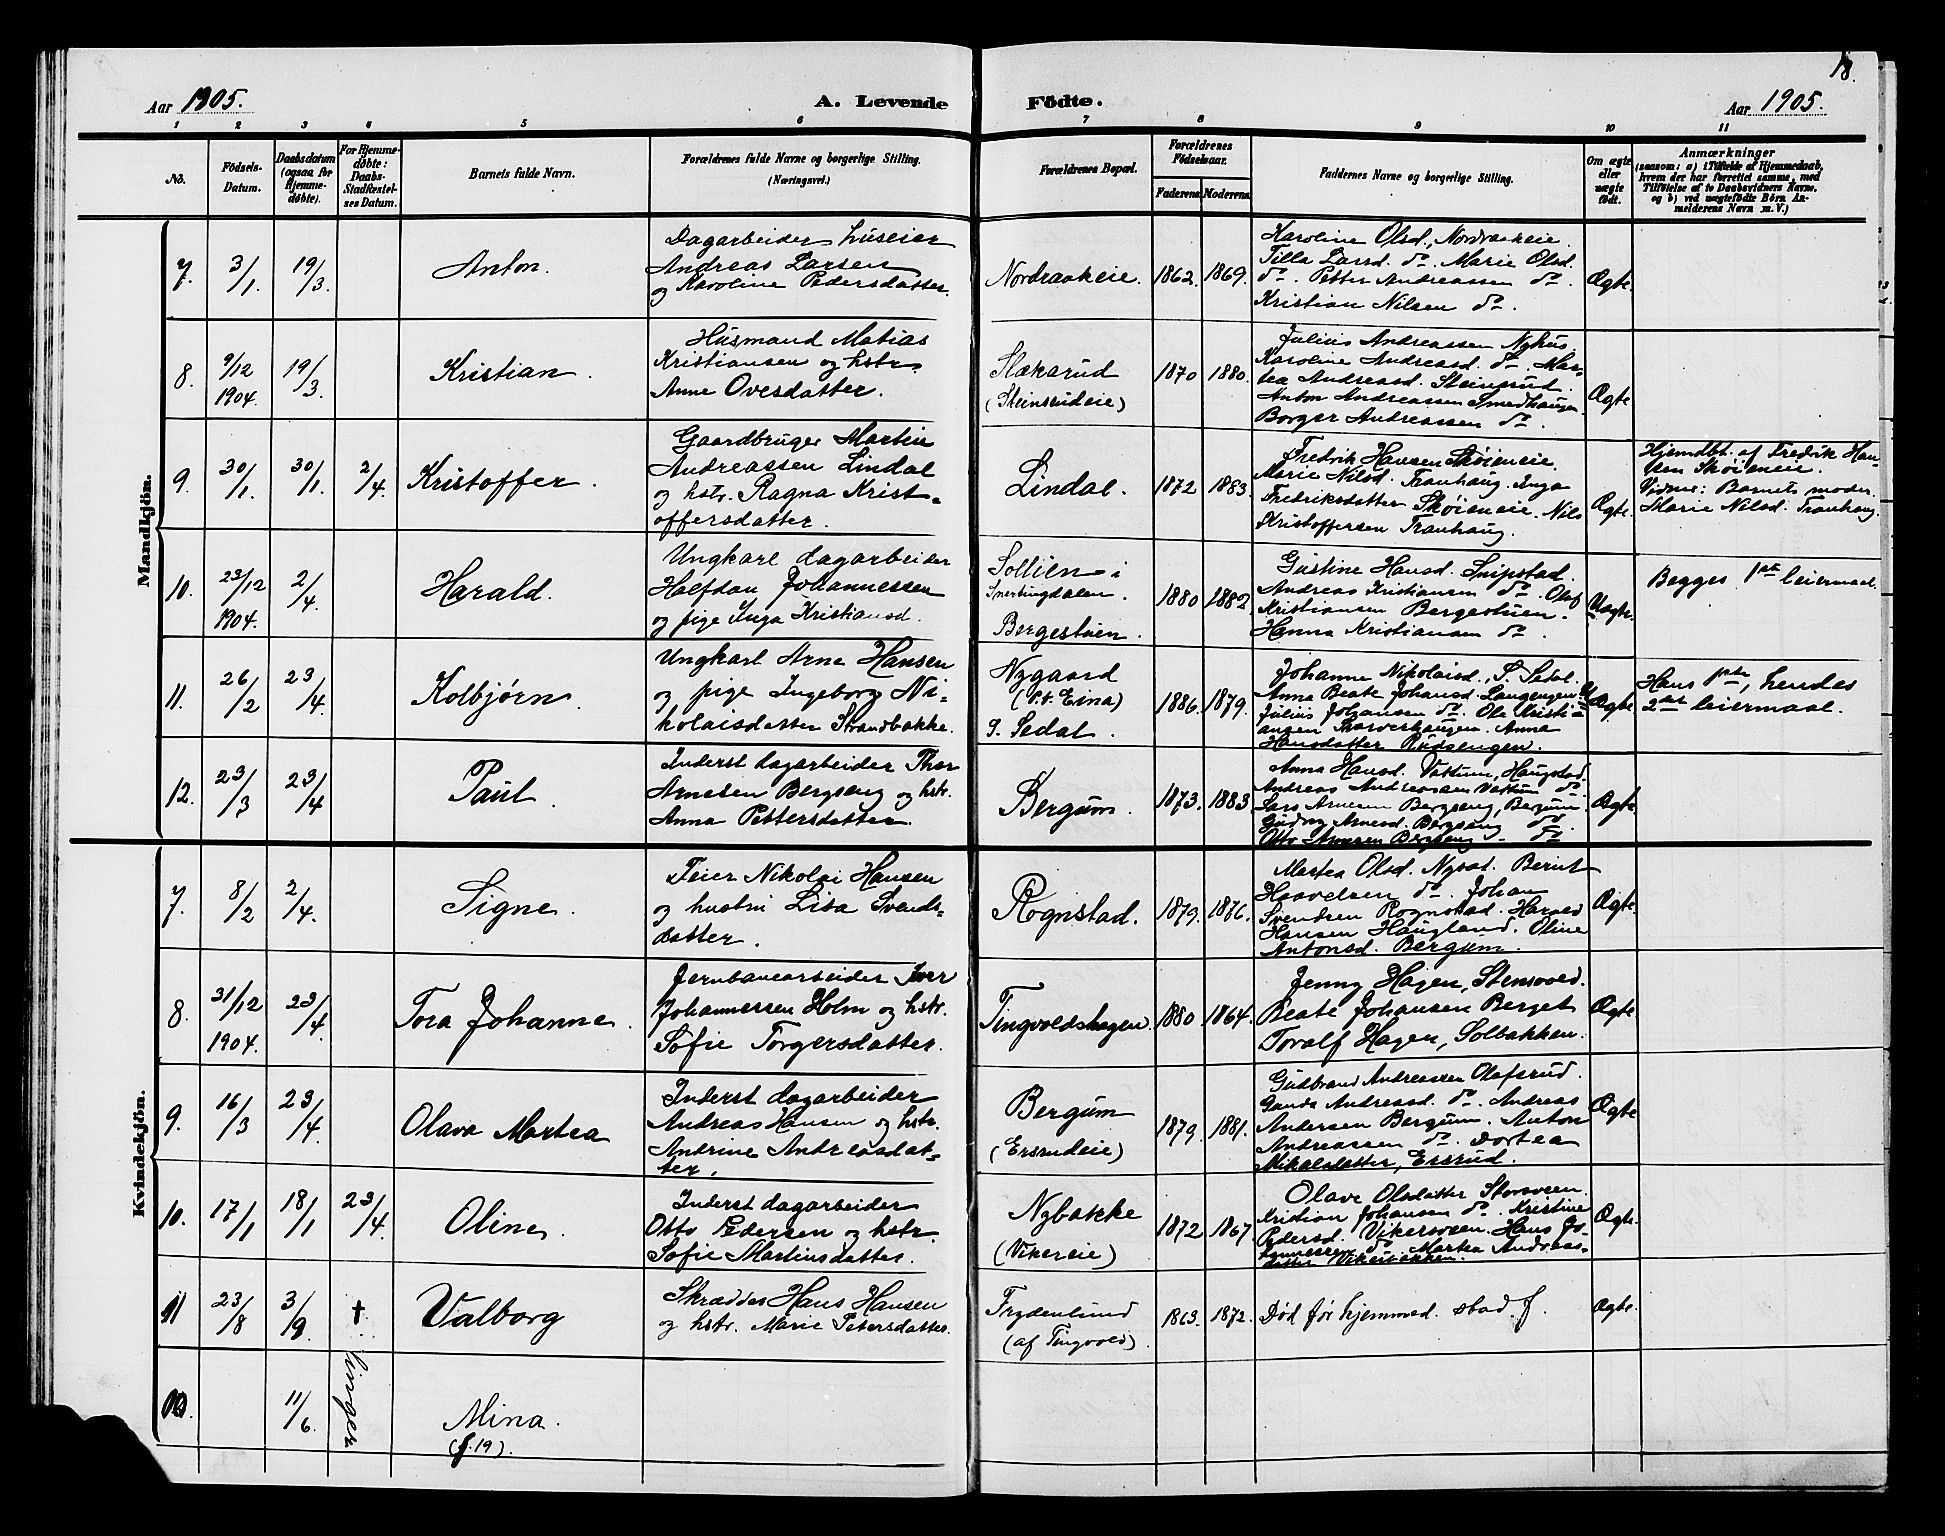 18.
Aar 1905.
A. Levende Fødte.
Aar 1905.
1 2 3 4 5 6 7 8 9 10 11
No.
Fødsels-
Datum.
Daabsdatum
(ogsaa for
Hjemme-
døbte).
For Hjemme-
døbte:
Daabs-
Stadfæstel-
ses Datum.
Barnets fulde Navn.
Forældrenes fulde Navne og borgerlige Stilling.
(Næringsvei.)
Forældrenes Bopæl.
Forældrenes
Fødselsaar.
Faderens. Moderens.
Faddernes Navne og borgerlige Stilling.
Om ægte
eller
uægte
født.
Anmærkninger
(saasom: a) i Tilfælde af Hjemmedaab,
hvem der har forrettet samme, med
Tilføielse af to Daabsvidners Navne.
og b) ved uægtefødte Børn An-
melderens Navn m. V.)
Mandkjøn.
7. 3/1. 19/3.
Anton.
Dagarbeider huseier
Andreas Larsen
og Karoline Pedersdatter.
Nordraakeie. 1862. 1869.
Karoline Olsd., Nordraakeie.
Tilla Larsd. do. Marie Olsd.
do. Petter Andreassen do.
Kristian Nilsen do.
Ægte.
8. 9/12 1904. 19/3.
Kristian.
Husmand Matias
Kristiansen og hstr.
Anne Ovesdatter.
Slækarud
(Steinsrudeie)
1870 1880.
Julius Andreassen Nyhus.
Karoline Andreasd. do. Mar-
tea Andreasd. Steinsrud.
Anton Andreassen Smedhaugen.
Borger Andreassen do.
Ægte
9. 30/1. 30/1. 2/4.
Kristoffer.
Gaardbruger Martin
Andreassen Lindal
og hstr. Ragna Krist-
offersdatter.
Lindal. 1872 1883.
Fredrik Hansen Skøieneie.
Marie Nilsd. Tranhaug. Inga
Fredriksdatter Skøieneie. Nils
Kristoffersen Tranhaug.
Ægte.
Hjemdbt. af Fredrik Han-
sen Skøieneie.
Vidner: Barnets moder.
Marie Nilsd. Tranhaug.
10. 23/12 1904. 2/4.
Harald.
Ungkarl dagarbeider
Halfdan Johannessen
og pige Inga Kristiansd.
Sollien i
Snertingdalen.
Bergestuen.
1880 1882
Gustine Hansd. Snipstad.
Andreas Kristiansen do. Olaf
Kristiansen Bergestuen.
Hanna Kristiansen do.
Uægte.
Begges 1ste leiermaal.
11. 26/2 23/4.
Kolbjørn.
Ungkarl Arne Hansen
og pige Ingeborg Ni-
kolaisdatter Strandbakke.
Nygaard
(p.t. Eina)
S. Sedal.
1886. 1879.
Johanne Nikolaisd. S. Sedal.
Anna Beate Johansd. Langengen.
Julius Johansen do. Ole Kristi-
ansen
Hansdatter Rudsengen.
Uægte.
Hans 1ste, hendes
2det leiermaal.
12. 23/3 23/4
Paul.
Inderst dagarbeider Thor
Arnesen Bergseng og hstr.
Anna Pettersdatter.
Bergum. 1873. 1883
Anna Hansd. Vattum, Haugstad.
Andreas Andreassen Vattum do.
Lars Arnesen Bergseng, Bergum.
Gudny Arnesd. Bergseng do.
Otto Arnesen Bergseng do.
Ægte.
Kvindekjøn.
7. 8/2 2/4.
Signe.
Feier Nikolai Hansen
og hustru Lisa Svends-
datter.
Rognstad. 1879. 1876.
Martea Olsd. Nysæt. Bernt
Haavelsen do. Johan
Svendsen Rognstad. Harald
Hansen Haugland. Oline
Antonsd. Bergum.
Ægte.
8. 31/12 1904. 23/4.
Tora Johanne.
Jernbanearbeider Iver
Johannessen Holm og hstr.
Sofie Torgersdatter.
Tingvoldshagen. 1880 1864.
Jenny Hagen, Stensvold.
Beate Johansen Berget
Toralf Hagen, Solbakken.
Ægte
9. 16/3 23/4.
Olava Martea
Inderst dagarbeider
Andreas Hansen og hstr.
Andrine Andreasdat-
ter.
Bergum
(Ersrudeie)
1879. 1881.
Gudbrand Andreassen Olafsrud.
Gunda Andreasd. do. Andreas
Andersen Bergum. Anton
Andreassen do. Dortea
Mikalsdatter, Ersrud.
Ægte
10. 17/1 18/1 23/4.
Oline.
Inderst dagarbeider
Otto Pedersen og hstr.
Sofie Martinsdatter.
Nybakke
(Vikereie)
1872 1867
Olave Olsdatter Storsveen.
Kristian Johansen do. Kristine
Pedersd. Vikersveen. Hans Jo-
hannessen do. Martea Andreas-
datter Vikerbakken.
Ægte.
11 23/8 3/9. †.
Valborg
Skrædder Hans Hansen
og hstr. Marie Petersdatter.
Frydenlund
(af Tingvold)
1863. 1872.
Død før hjemmed. stadf.
Ægte.
11/6
Mina.
(f. 19).